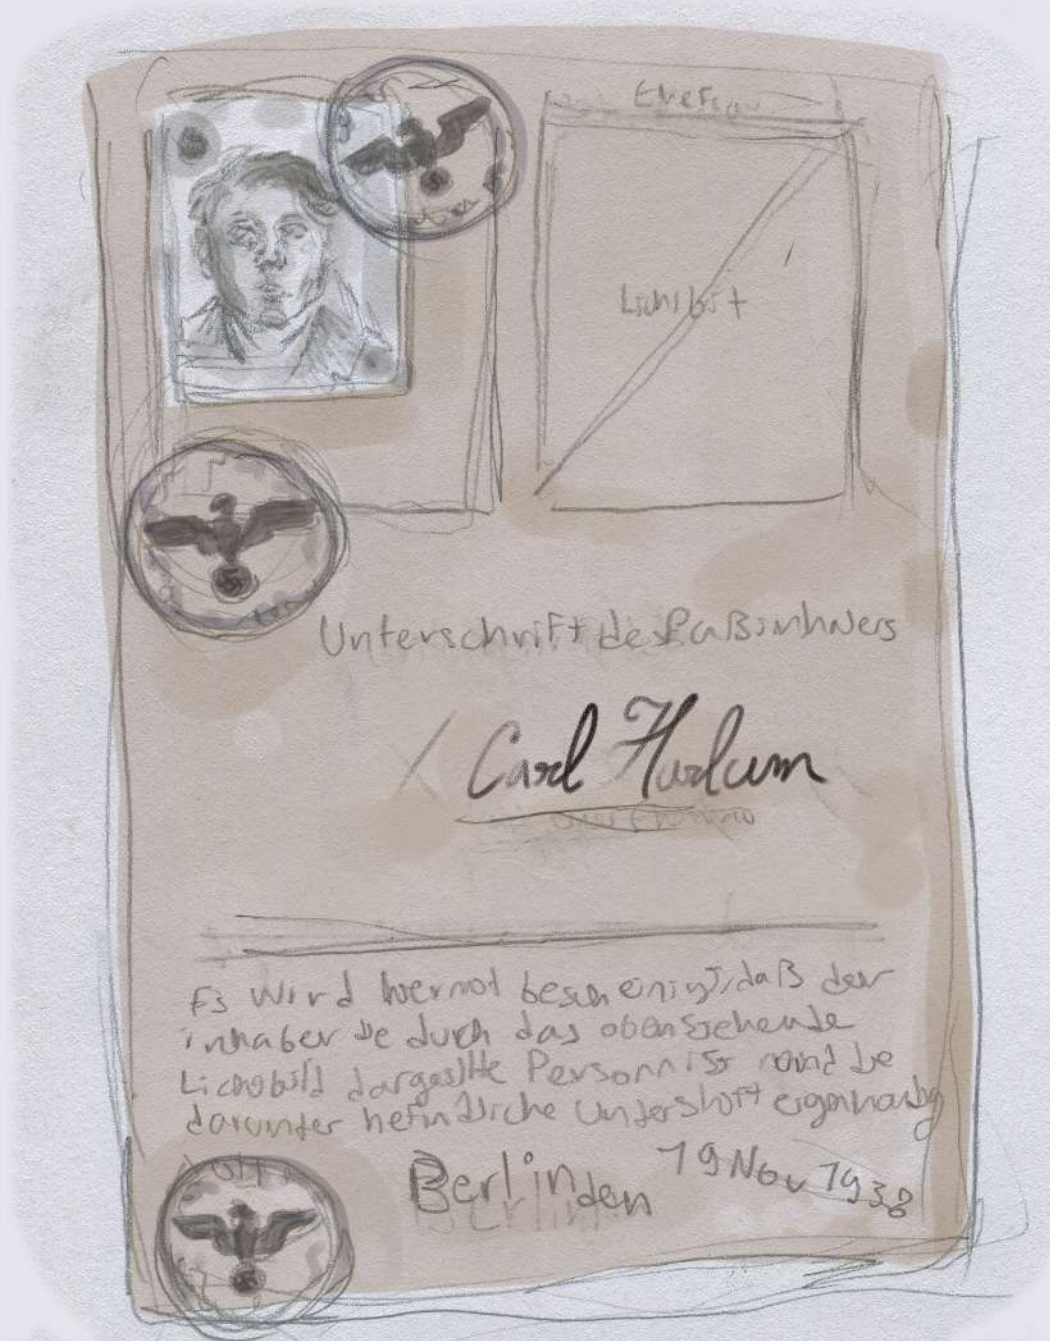 Lichtbit
Unterschrift des Paßinhaers
Carl Harlum
Es wird hiermot bescheinigt, daß der
inhaber de durch das obenstehende
Lichobild dargesllte Personn ist nound de
darunter hefindliche Undershift
Berlin den 19 Nov 1938